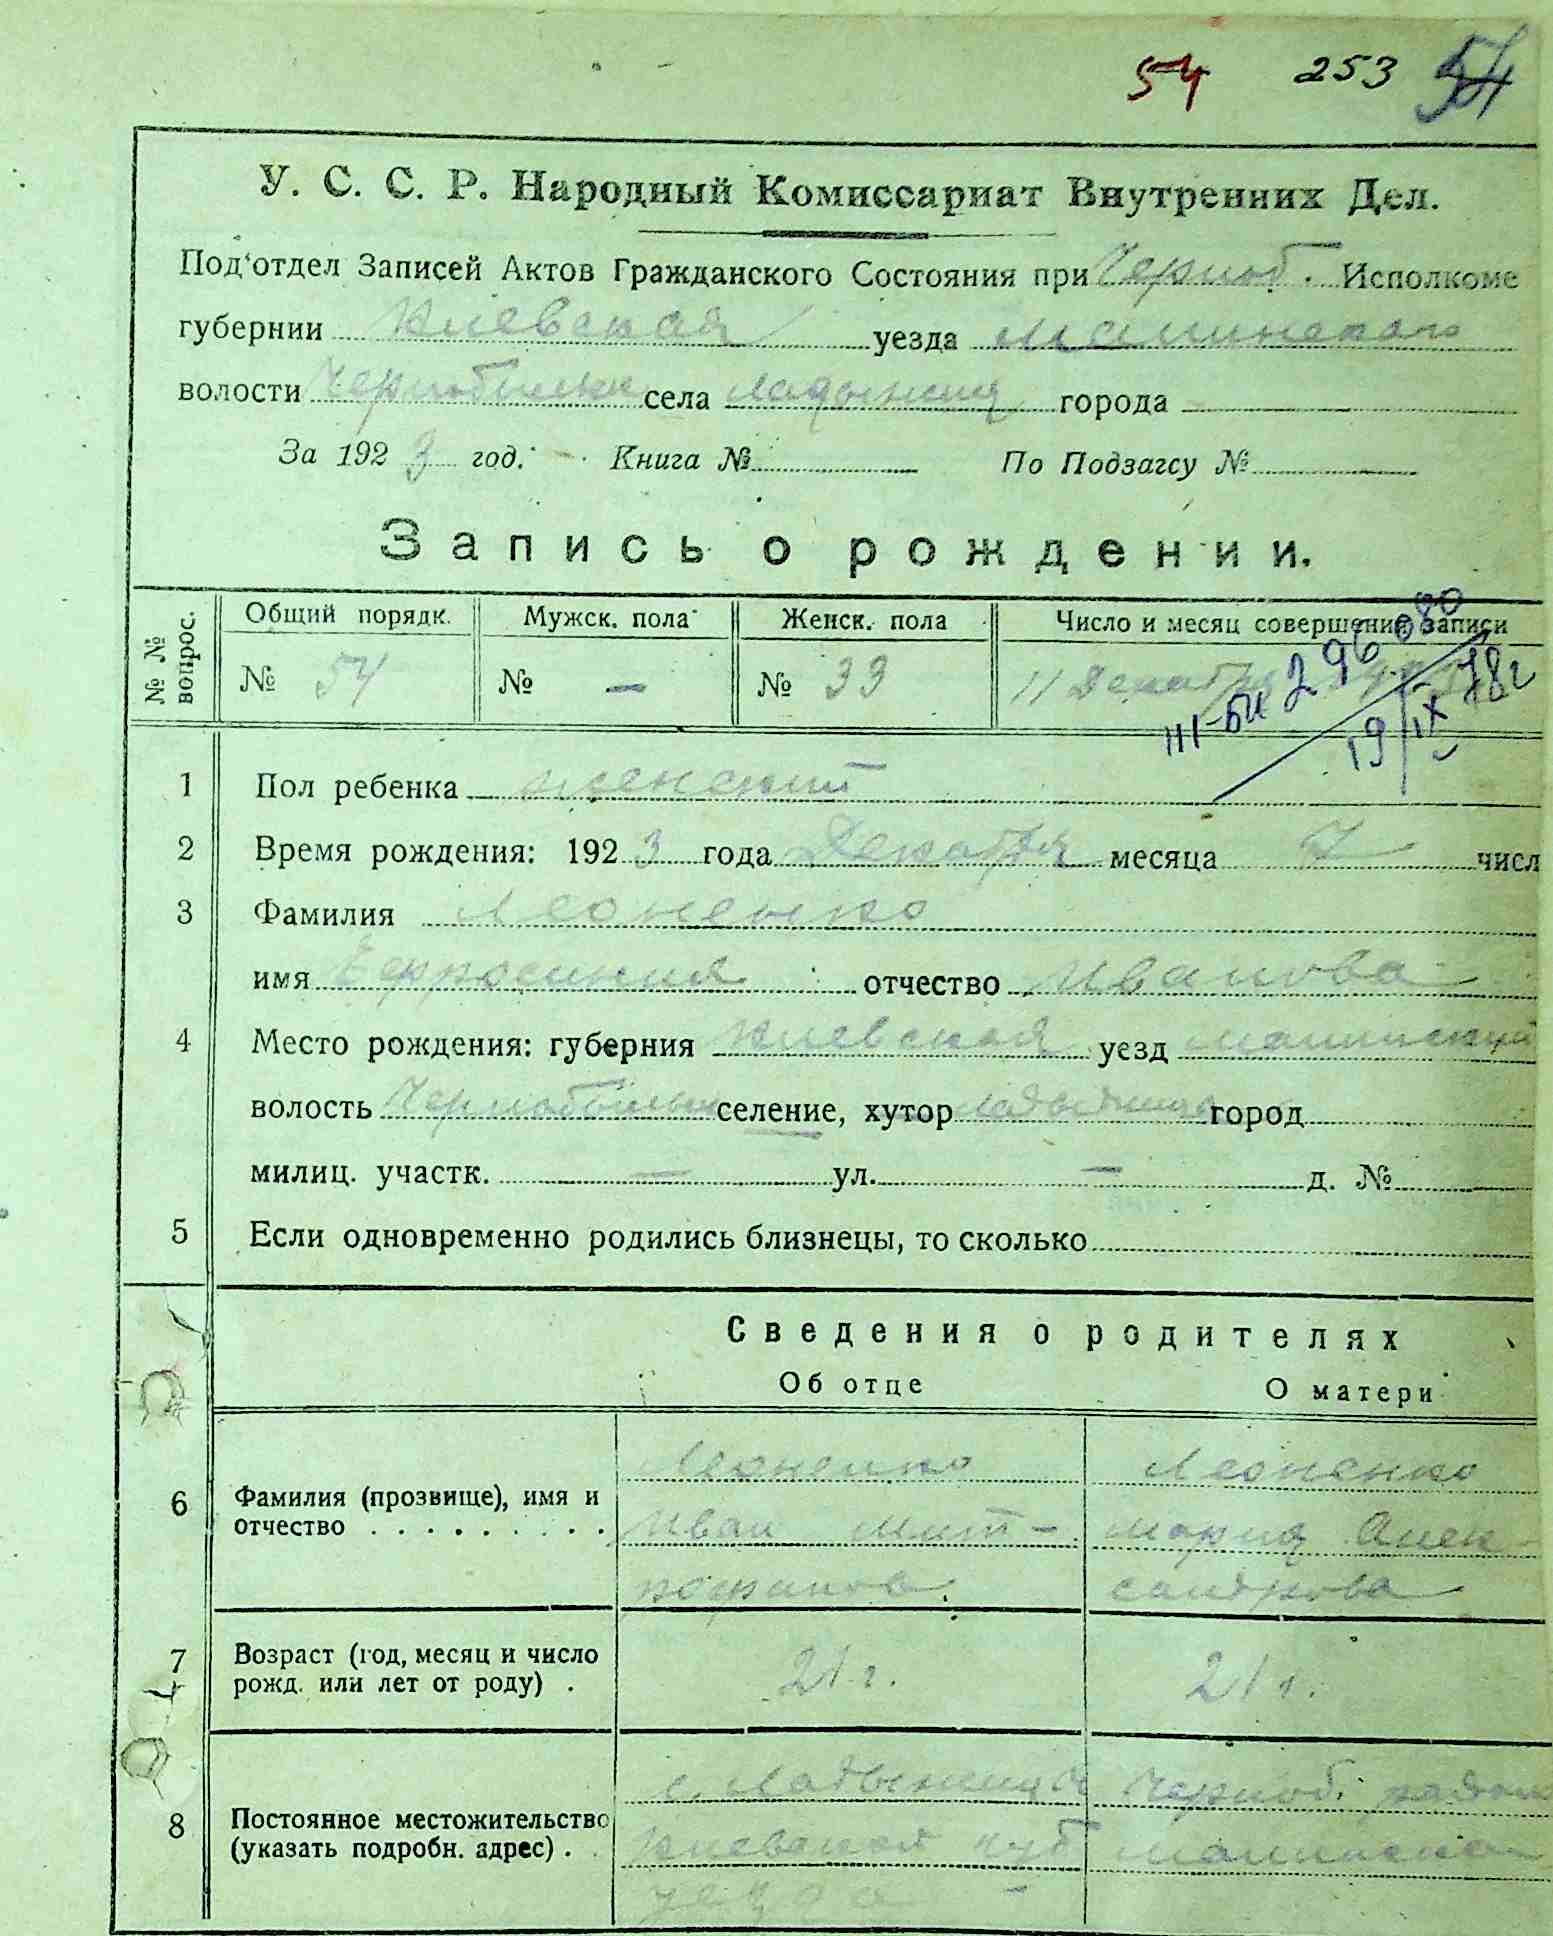 54 253 54
У. С. С. Р. Народный Комиссариат Внутренних Дел.
Под'отдел Записей Актов Гражданского Состояния при Черноб. Исполкоме
губернии Киевская уезда
волости села города
За 192 3 год. Книга № По Подзагсу №
Запись о рождении.
№ № вопрос. Общий порядк. Мужск. пола Женск. пола Число и месяц совершения записи
№ 54 № — № 33 11 Декабря
III-БИ 296080
19/IX 78г
1 Пол ребенка женский
2 Время рождения: 192 3 года Декабря месяца 7 числ
3 Фамилия Леоненко
имя отчество Иванова
4 Место рождения: губерния Киевская уезд
волость селение, хутор город
милиц. участк. — ул. — д. №
5 Если одновременно родились близнецы, то сколько
Сведения о родителях
Об отце О матери
6 Фамилия (прозвище), имя и отчество Леоненко Иван Мит- Леоненко Мария Алек-
сандрова
7 Возраст (год, месяц и число рожд. или лет от роду) . 21 г. 21 г.
8 Постоянное местожительство (указать подробн. адрес) . с. Черноб. района
Киевской губ
уезда